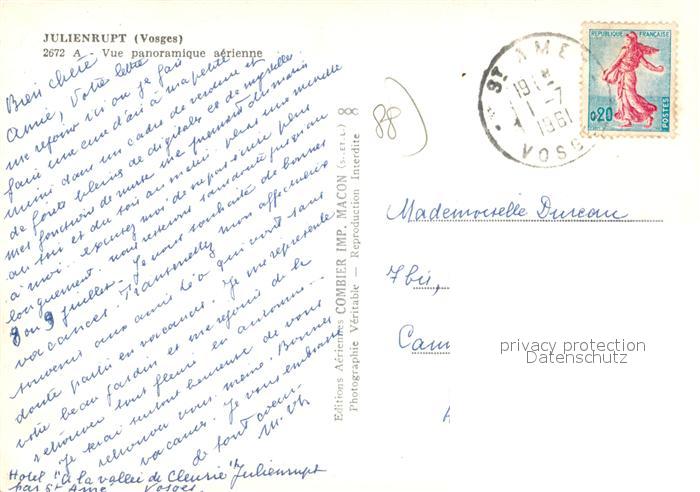 JULIENRUPT (Vosges)
2672 A - Vue panoramique aérienne
Bien chère
Amie, Votre lettre
me rejoint ici où je fais
faire une cure d'air à ma petite
mimi dans un cadre de verdure et
de forêts pleines de digitales et de myrtilles
mes fonctions de nurse me prennent du matin
au soir et du soir au matin pas une minute
à moi. excusez moi de ne pas écrire plus
longuement. nous resterons sans doute jusqu'au
8 ou 9 juillet. Je vous souhaite de bonnes
vacances. Transmettez mon affectueux
souvenir aux amis qui vont sans
doute partir en vacances. Je me représente
votre beau jardin et me réjouis de le
retrouver tout fleuri en automne.
Je serai surtout heureuse de vous
retrouver vous même. Bonnes
vacances. Je vous embrasse
de tout cœur
Hotel "à la vallée de Cleurie" Julienrupt
par St Amé Vosges
Editions Aériennes COMBIER IMP. MACON (S.-ET-L.)
Photographie Véritable — Reproduction Interdite
88
ST AME
19 H
1-7
1961
VOSGES
0,20
POSTES
Mademoiselle Dureau
7 bis,
Cam
privacy protection
Datenschutz